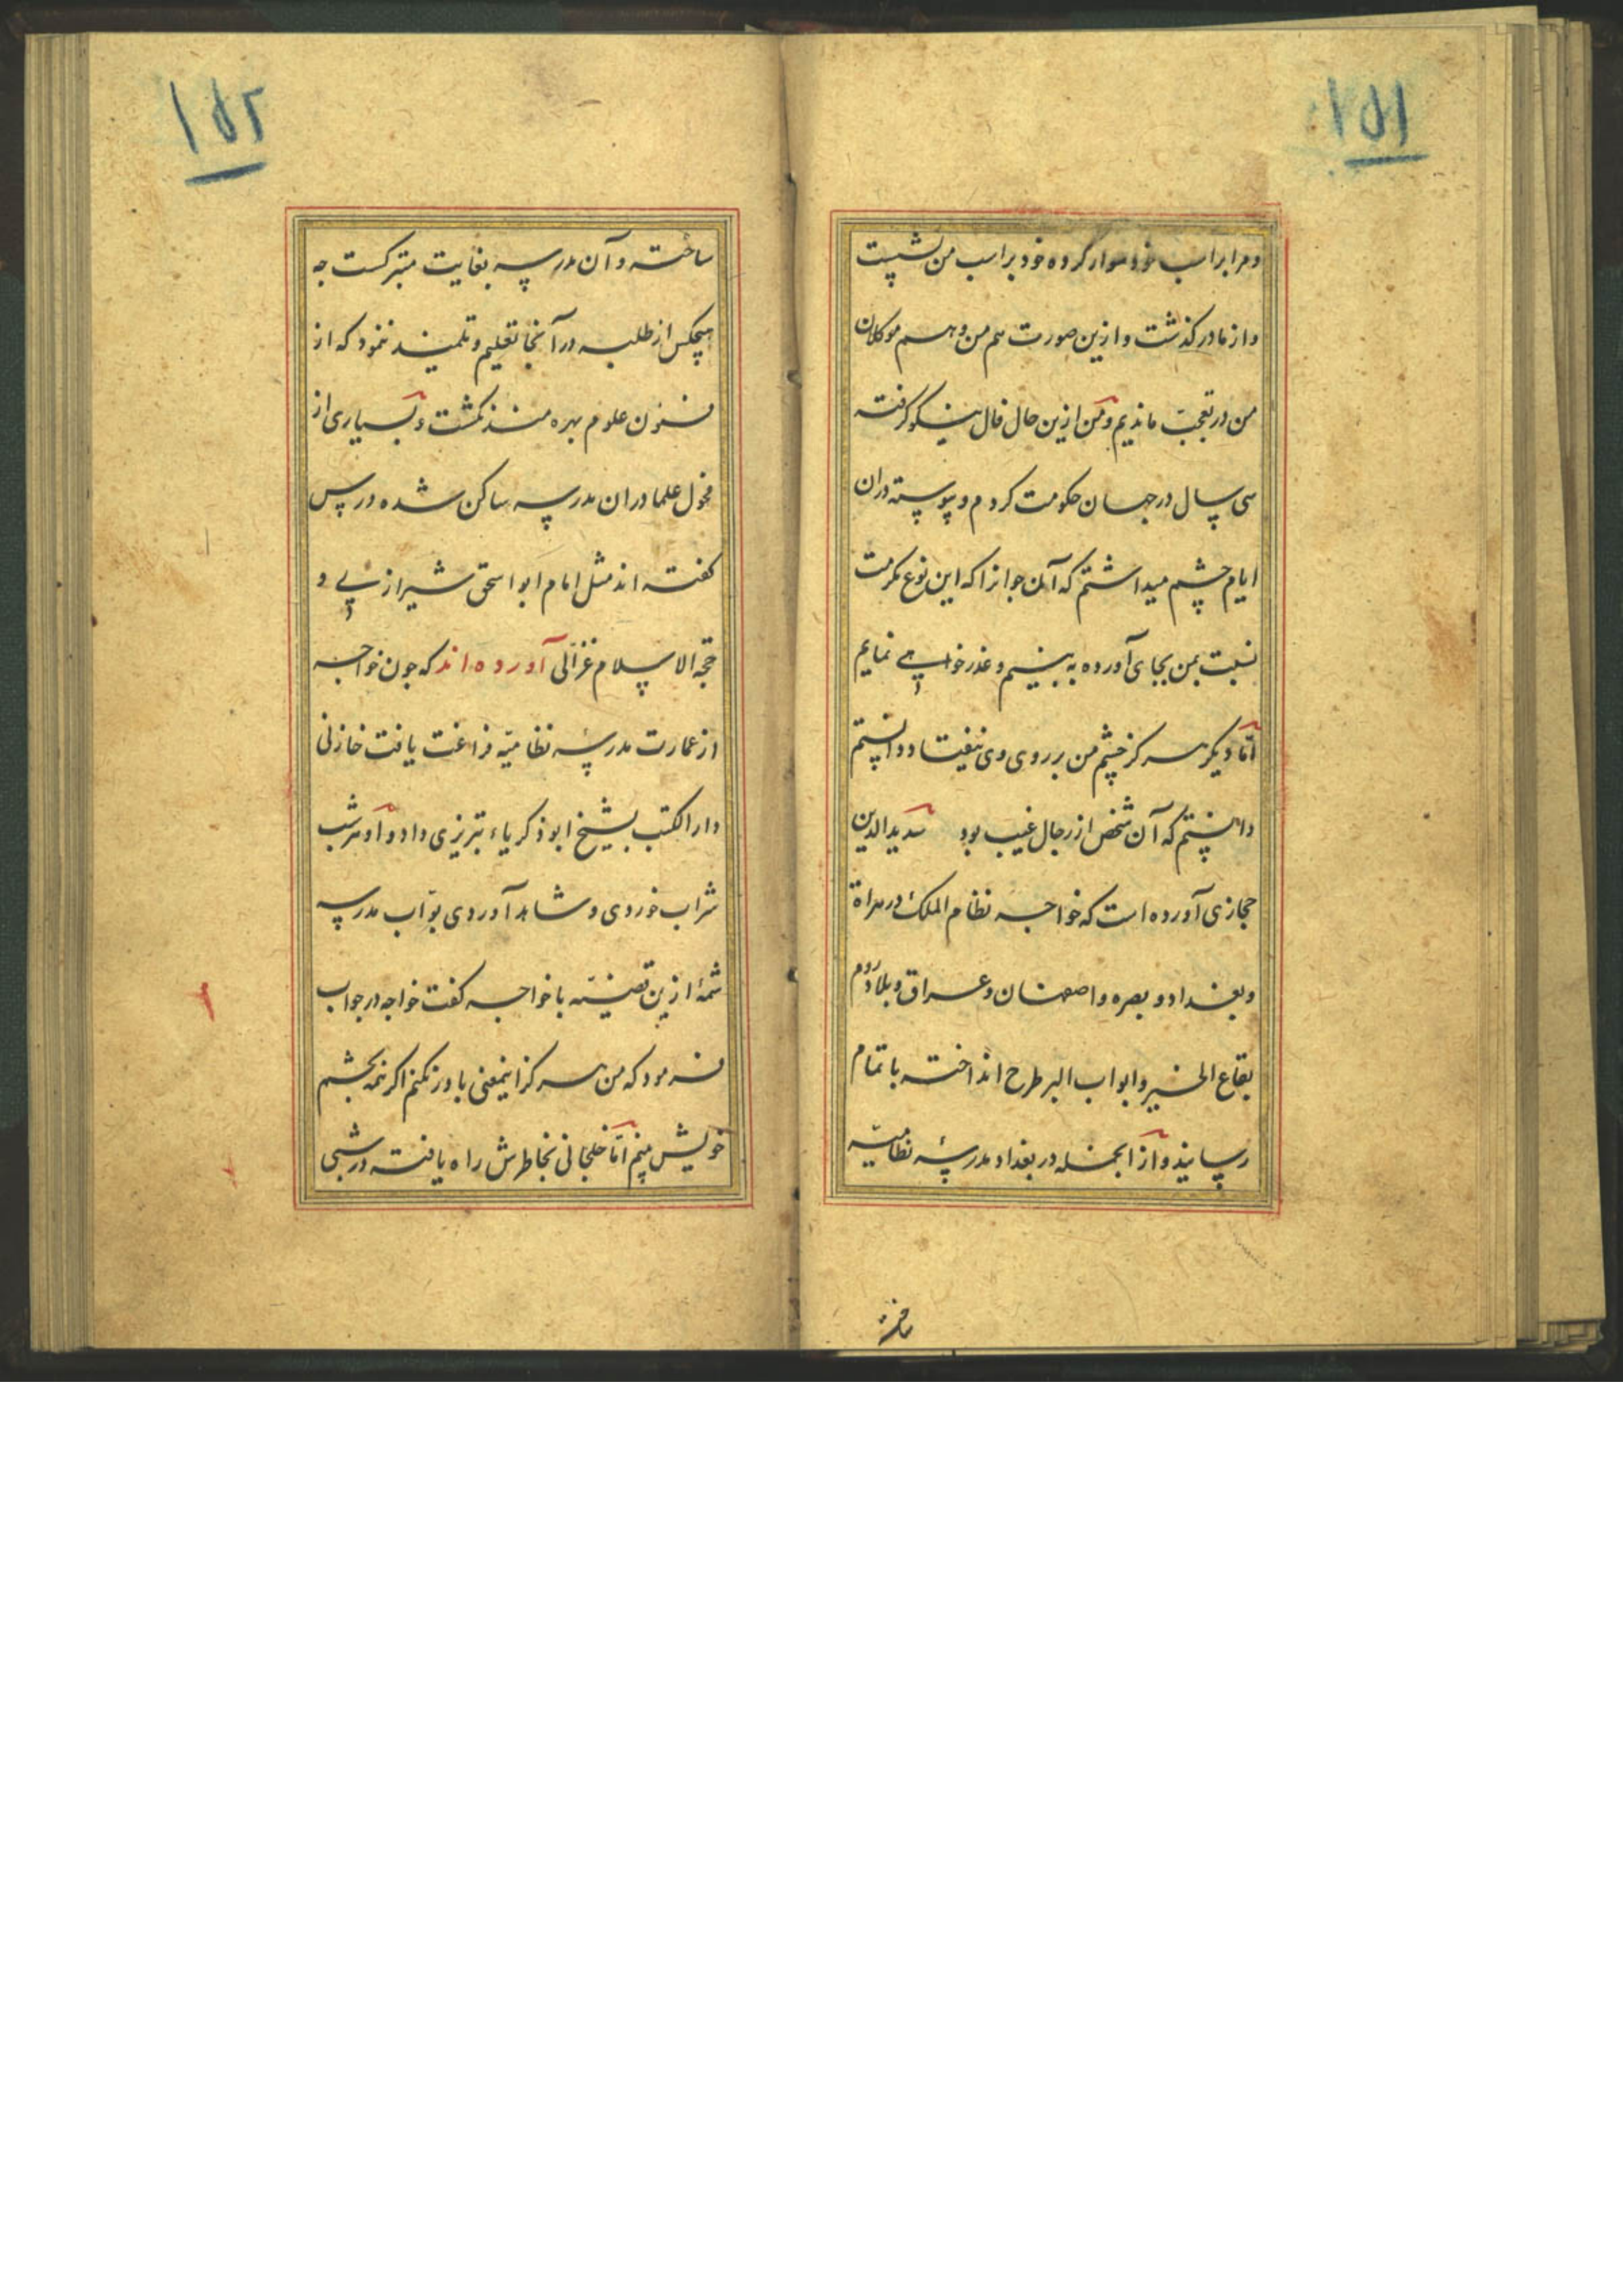 ۱۵۱
و مرا بر اسب خود سوار کرده خود بر اسب من نشست
و از ما در کذشت و ازین صورت هم من و هم موکلان
من در تعجب ماندیم و من ازین حال فال نیکو کرفته
سی سال در جهان حکومت کردم و پیوسته دران
ایام چشم میداشتم که آن جوانرا که این نوع مکرمت
نسبت بمن بجای آورده به بینم و عذر خواهی نمایم
امّا دیکر هرکز چشم من بر روی وی نیفتاد و دانستم
دانستم که آن شخص از رجال غیب بود سدیدالدین
حجازی آورده است که خواجه نظام الملک در هراة
و بغداد و بصره و اصفهان و عراق و بلاد روم
بقاع الخیر و ابواب البر طرح انداخته باتمام
رسانید و از آنجمله در بغداد مدرسهٔ نظامیّه
ساخته
۱۵۲
ساخته و آن مدرسه بغایت متبرکست چه
هیچکس از طلبه در آنجا تعلیم و تلمیذ ننمود که از
فنون علوم بهره مند نکشت و بسیاری از
فحول علما دران مدرسه ساکن شده درس
کفته اند مثل امام ابو اسحق شیرازیی و
حجّة الاسلام غزّالی آورده اند که چون خواجه
از عمارت مدرسهٔ نظامیّه فراغت یافت خازنی
دار الکتب بشیخ ابوذکریاء تبریزی داد و او هر شب
شراب خوردی و شاهد آوردی بوّاب مدرسه
شمهٔ ازین قضیّه با خواجه کفت خواجه در جواب
فرمود که من هرکز اینمعنی باور نکنم اکر نه بچشم
خویش بینم امّا خلجانی بخاطرش راه یافته در شبی